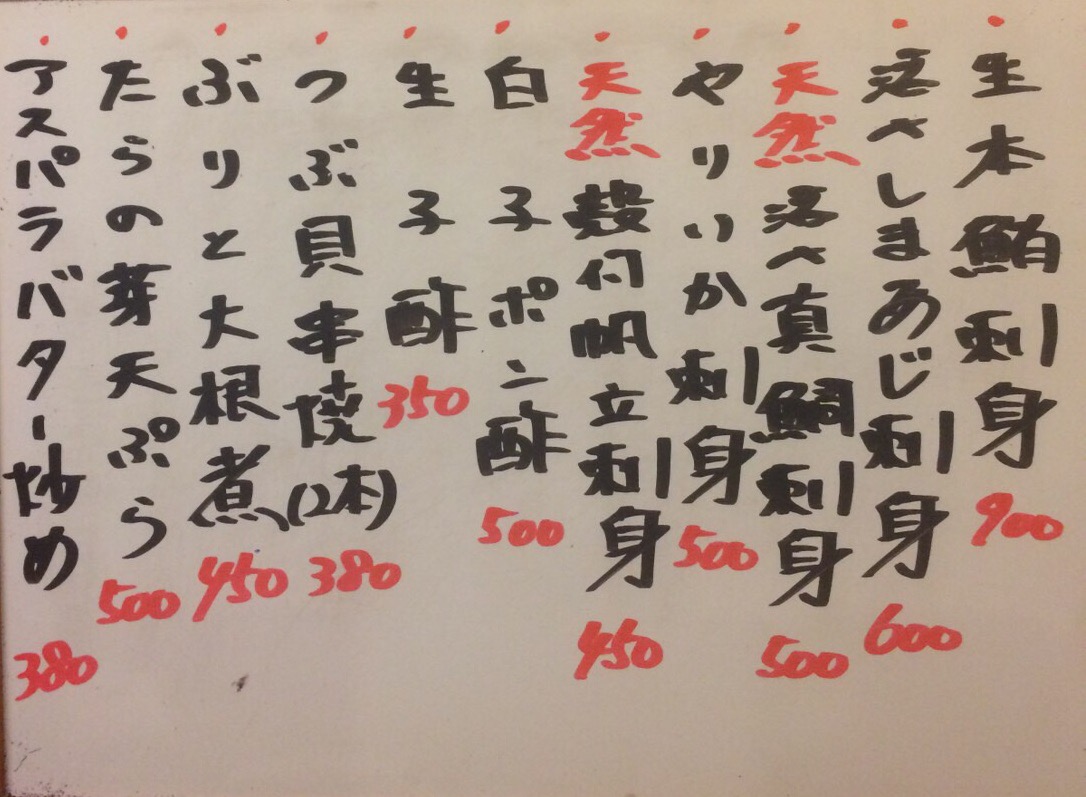 生本鮪刺身 900
活〆しまあじ刺身 600
天然活〆真鯛刺身 500
やりいか刺身 500
天然殻付帆立刺身 450
白子ポン酢 500
生子酢 350
つぶ貝串焼(2本) 380
ぶりと大根煮 450
たらの芽天ぷら 500
アスパラバター炒め 380